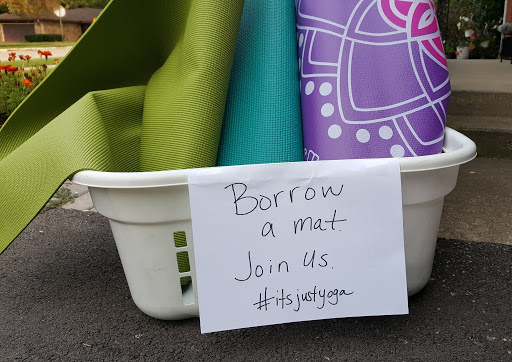 Borrow
a mat.
Join Us.
#itsjustyoga